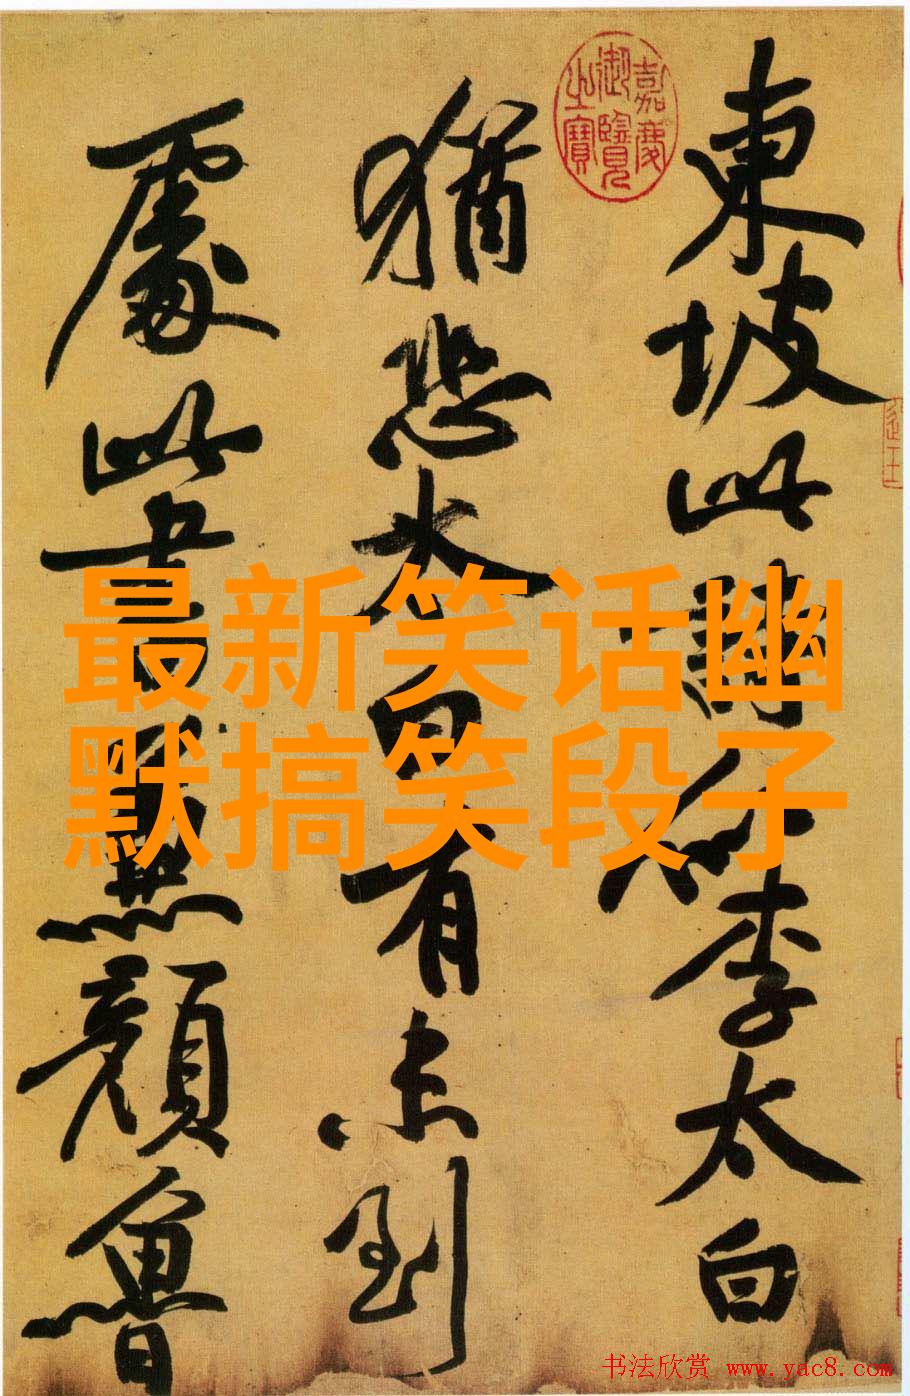 東坡此詩似李太白
猶恐太白有未到
處此書兼顏魯
嘉慶
御覽
之寶
最新笑话幽
默搞笑段子
书法欣赏 www.yac8.com